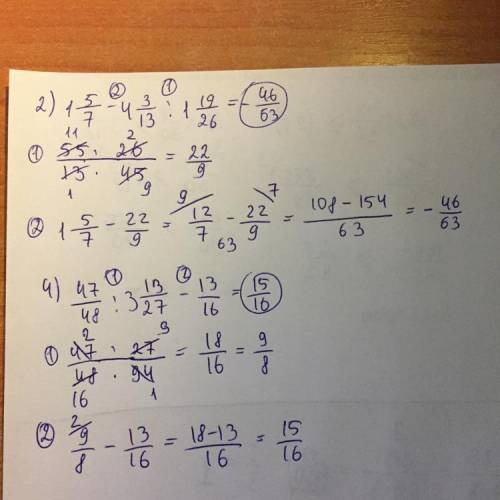 2) 1 5/7 - 4 3/13 : 1 19/26 = - 46/63
① 55 · 26 / 13 · 45 = 22/9
② 1 5/7 - 22/9 = 12/7 - 22/9 = 108 - 154 / 63 = - 46/63
4) 47/48 : 3 13/27 - 13/16 = 15/16
① 47 · 27 / 48 · 94 = 18/16 = 9/8
② 9/8 - 13/16 = 18-13 / 16 = 15/16